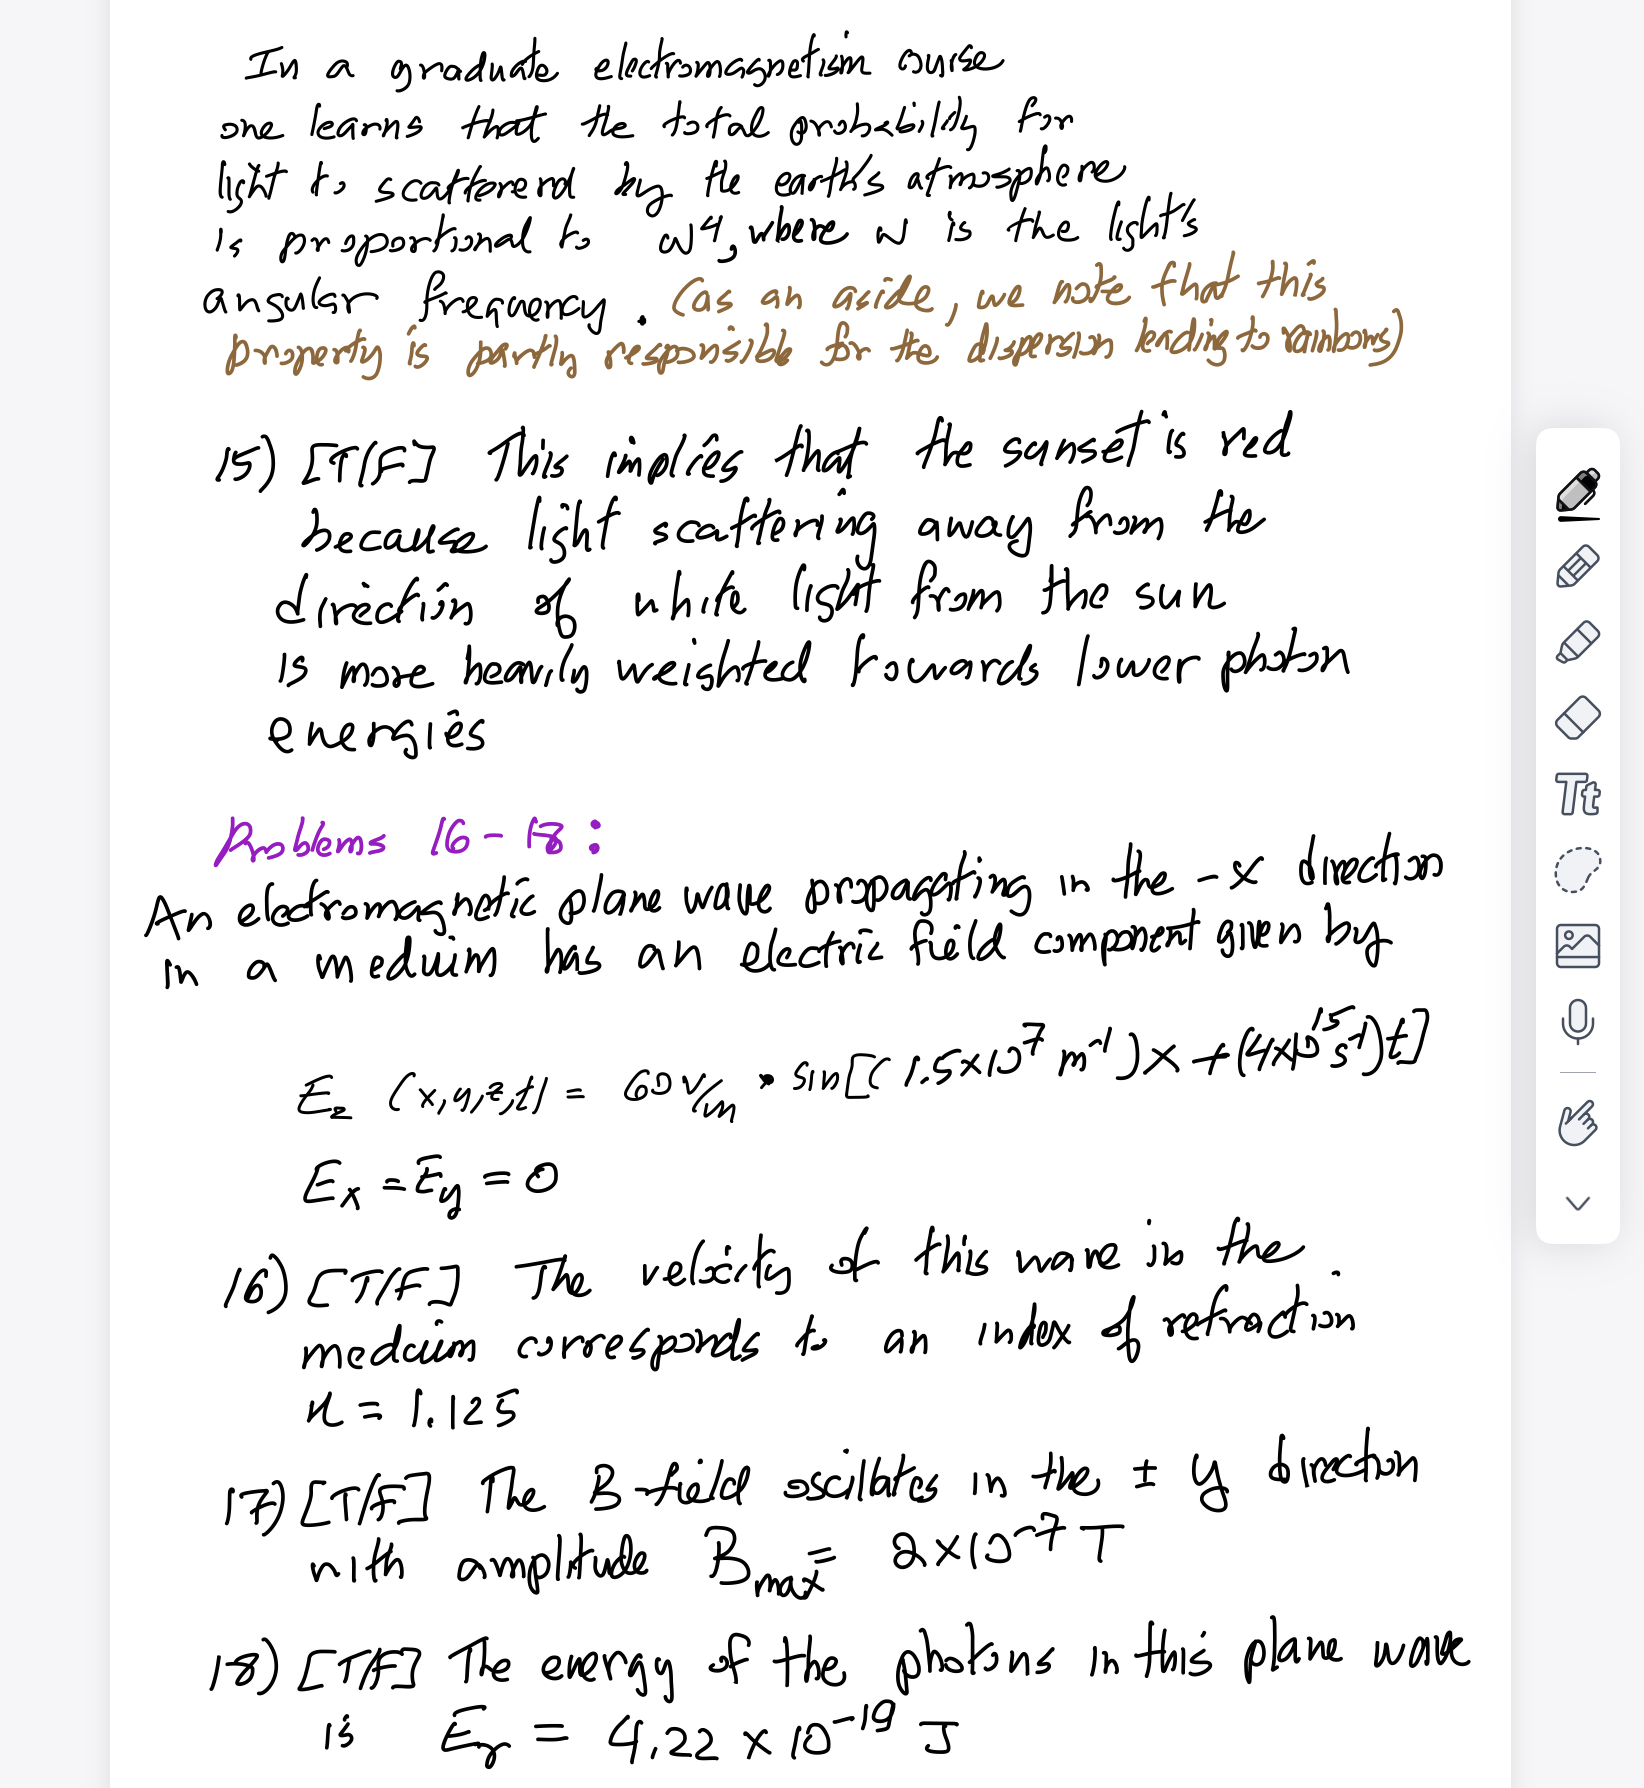 In a graduate electromagnetism course
one learns that the total probability for
light to scattererd by the earth's atmosphere
is proportional to ω⁴, where ω is the light's
angular frequency. (as an aside, we note that this
property is partly responsible for the dispersion leading to rainbows)
15) [T/F] This implies that the sunset is red
because light scattering away from the
direction of white light from the sun
is more heavily weighted towards lower photon
energies
Problems 16-18:
An electromagnetic plane wave propagating in the -x direction
in a meduim has an electric field component given by
E_z (x,y,z,t) = 60 V/m • sin[(1.5×10⁷ m⁻¹)x + (4×10¹⁵ s⁻¹)t]
E_x = E_y = 0
16) [T/F] The velocity of this wave in the
medium corresponds to an index of refraction
n = 1.125
17) [T/F] The B-field oscillates in the ± y direction
with amplitude B_max = 2×10⁻⁷ T
18) [T/F] The energy of the photons in this plane wave
is E_γ = 4.22 × 10⁻¹⁹ J
Tt